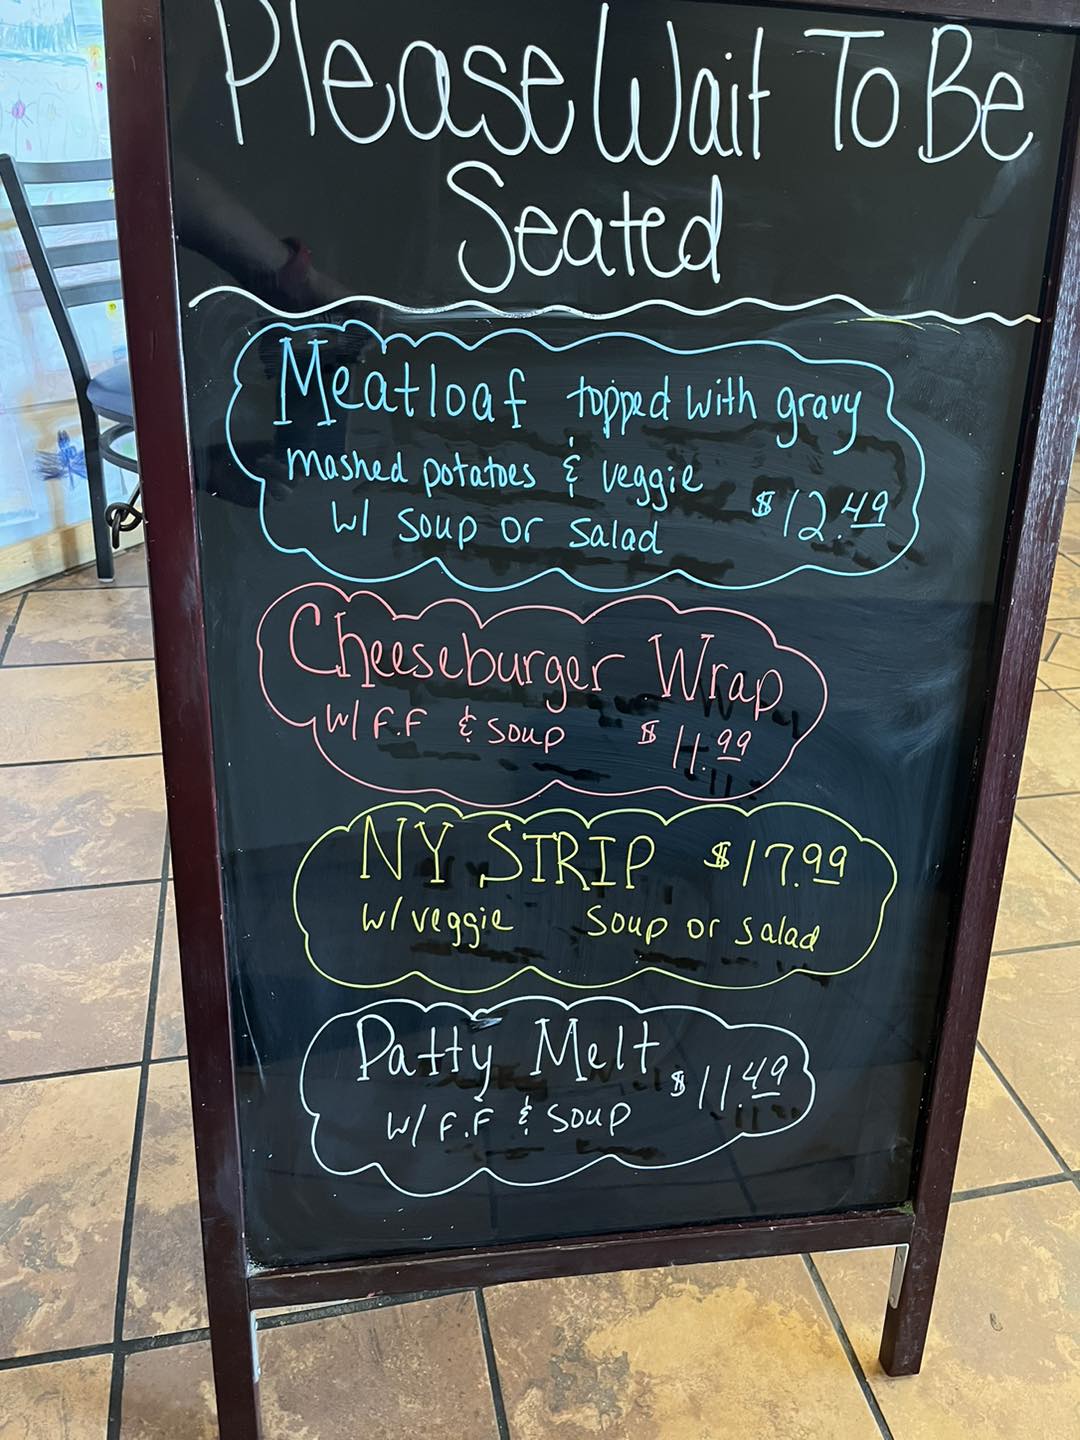 Please Wait To Be
Seated
Meatloaf topped with gravy
mashed potatoes & veggie
w/ soup or salad $12.49
Cheeseburger Wrap
w/ F.F & soup $11.99
NY STRIP $17.99
w/ veggie soup or salad
Patty Melt
w/ F.F & soup $11.49